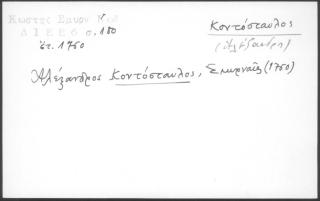 Κωστῆς Σμυρν
ΔΙΕΕ 6 σ. 180
ἔτ. 1750
Κοντόσταυλος
(Ἀλέξανδρ.)
Ἀλέξανδρος Κοντόσταυλος, Σμυρναῖος (1750)